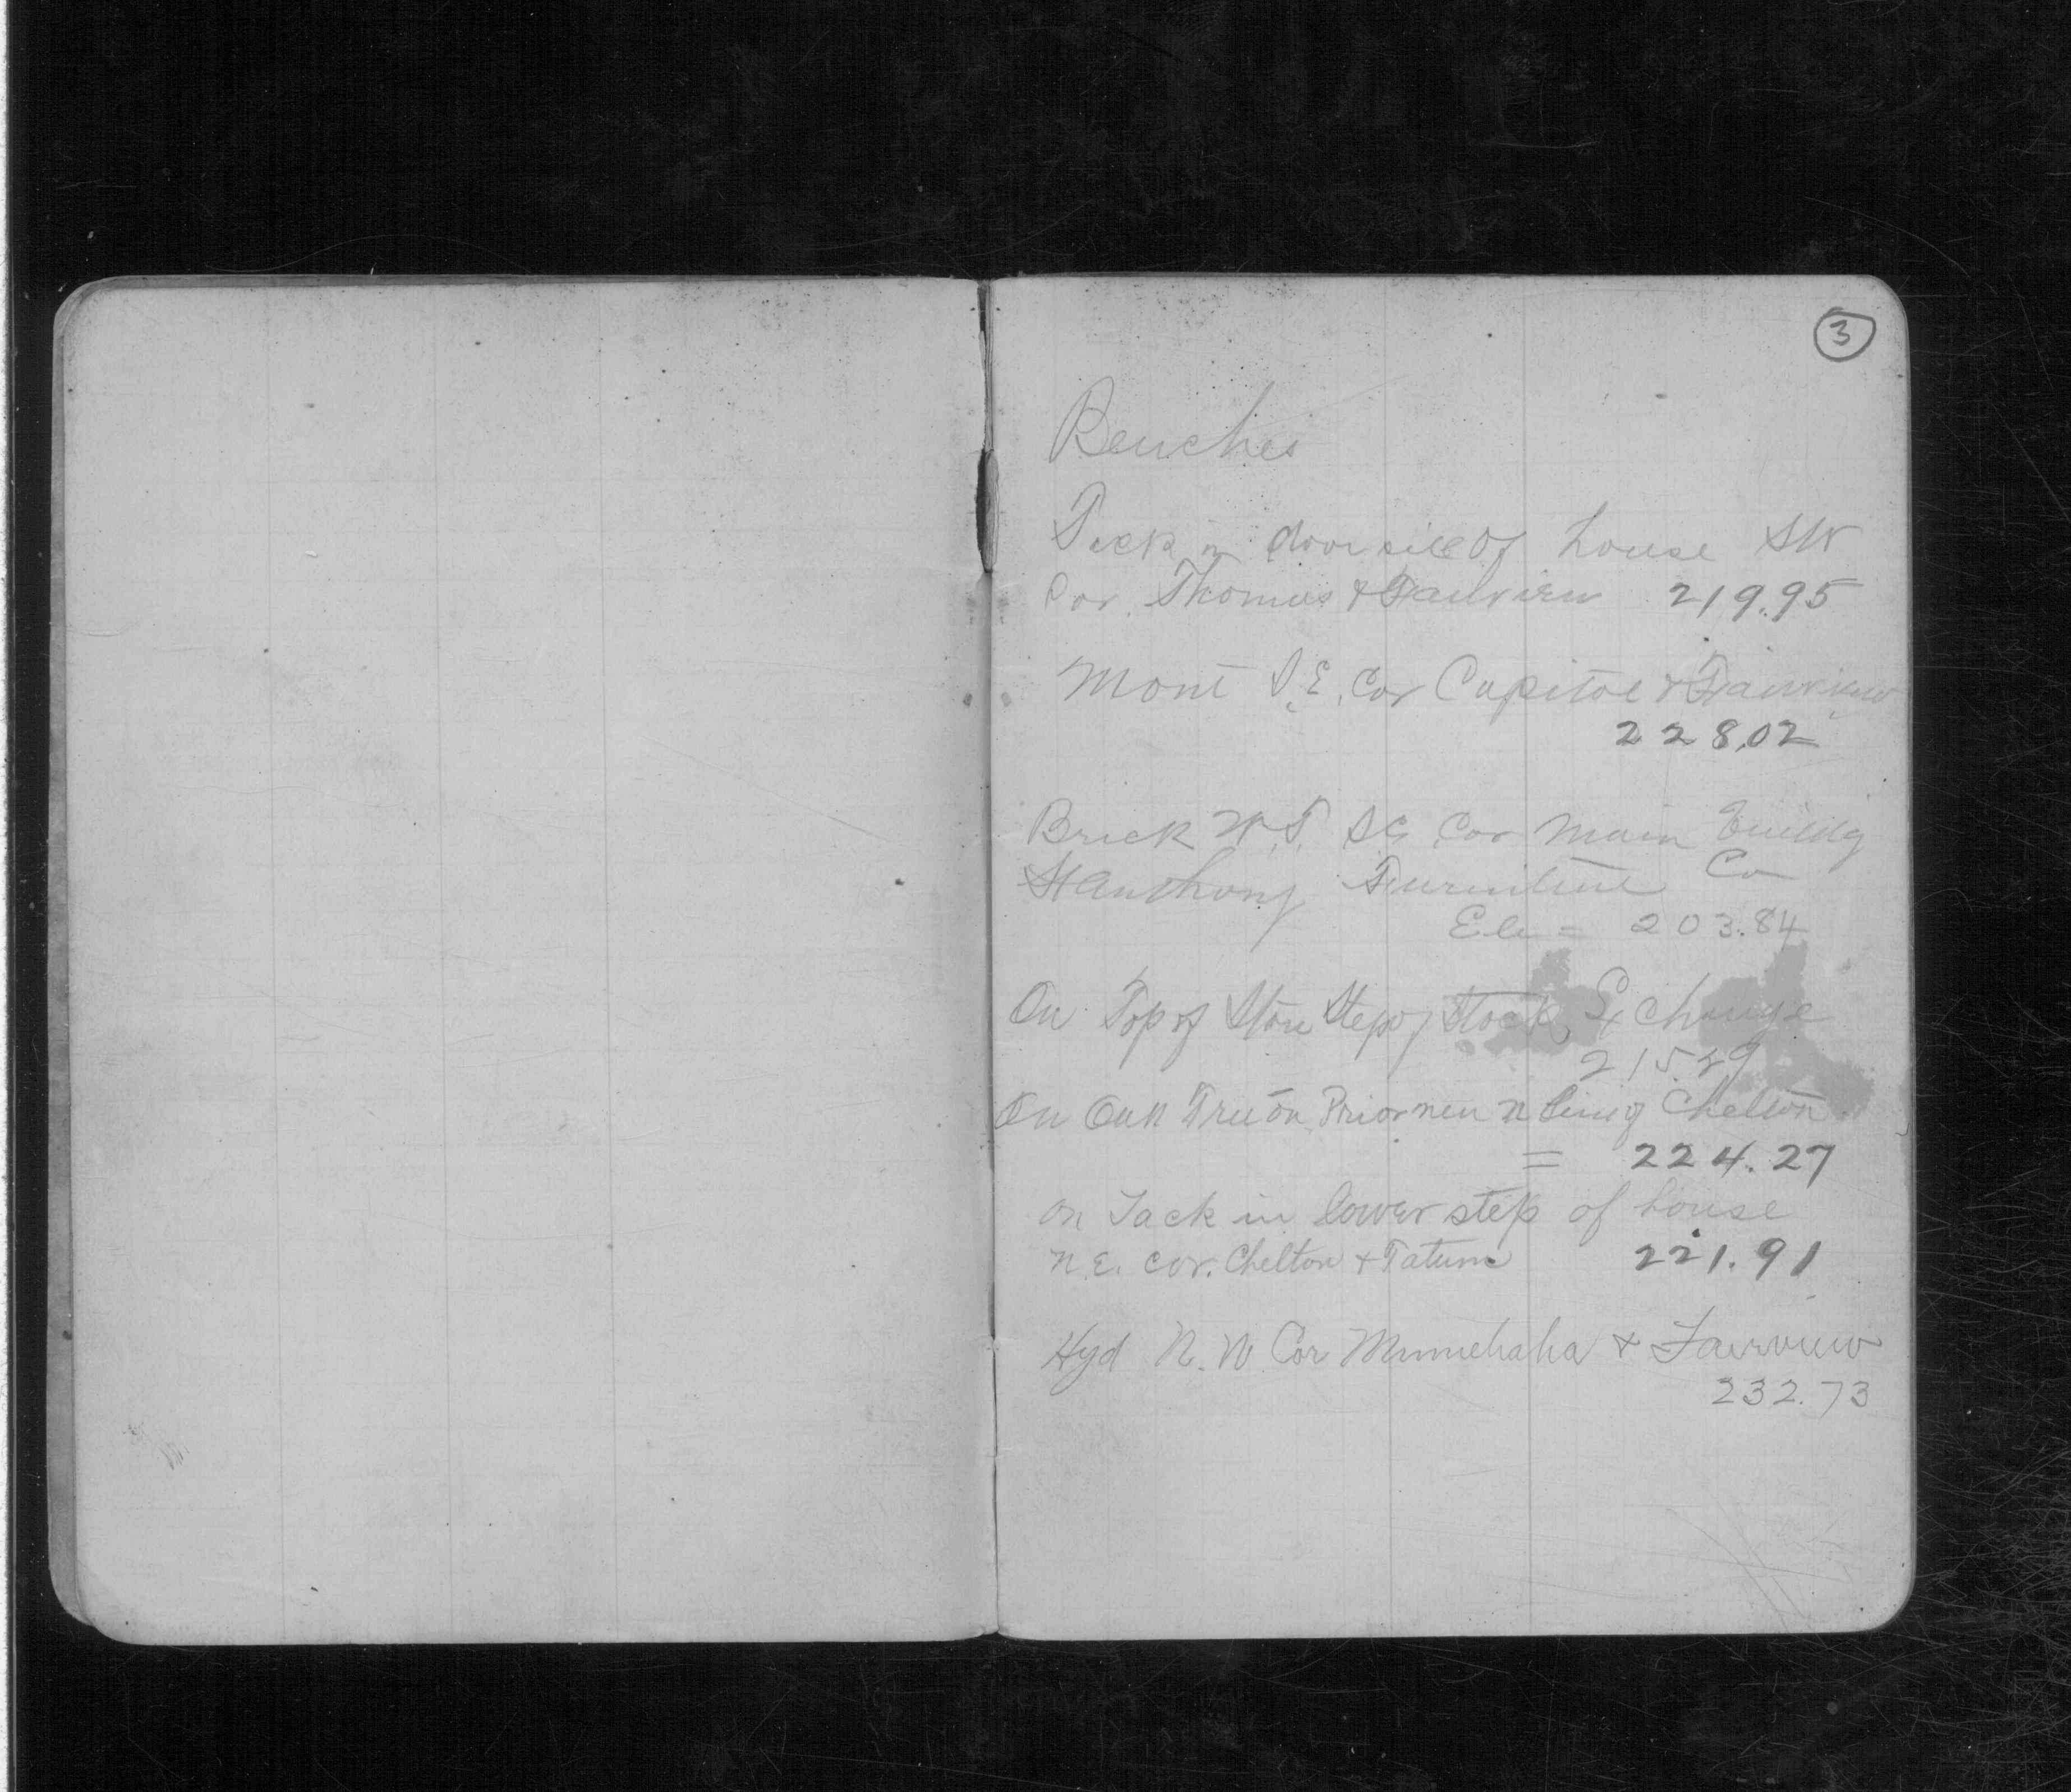 3
Benches
Tack in door sill of house SW
Cor. Thomas & Fairview 219.95
Mont S.E. Cor Capitol & Fairview
228.02
Brick W.T. SE Cor Main Buildg
St Anthony Furniture Co
Ele = 203.84
On Top of Stone Step of Stock Exchange
215.29
On Oak Tree on Prior near n line of Chelton
= 224.27
on Tack in lower step of house
N.E. cor. Chelton + Tatum 221.91
Hyd N.W. Cor Minnehaha + Fairview
232.73